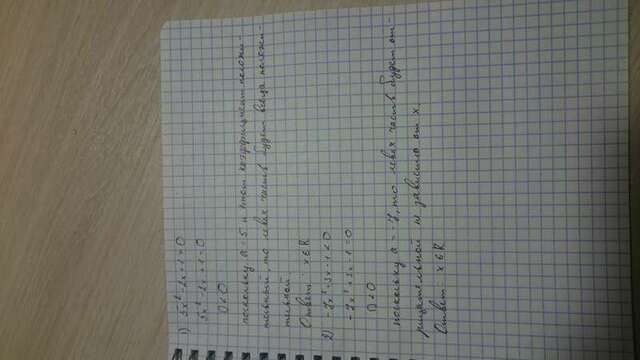 1) 5x² - 2x + 1 > 0
5x² - 2x + 1 = 0
D < 0
поскольку a = 5 и этот коэффициент положи-
тельный, то левая часть будет всегда положи-
тельной
Ответ x ∈ R
2) -7x² + 3x - 1 < 0
-7x² + 3x - 1 = 0
D < 0
поскольку a = -7, то левая часть будет от-
рицательной не зависимо от x.
Ответ x ∈ R